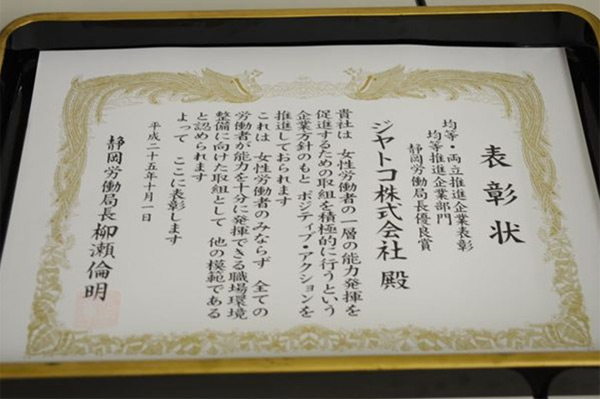 表彰状
均等・両立推進企業表彰
均等推進企業部門
静岡労働局長優良賞
ジヤトコ株式会社 殿
貴社は 女性労働者の一層の能力発揮を
促進するための取組を積極的に行うという
企業方針のもと ポジティブ・アクションを
推進しておられます
これは 女性労働者のみならず 全ての
労働者が能力を十分に発揮できる職場環境
整備に向けた取組として 他の模範である
と認められます
よって ここに表彰します
平成二十五年十月一日
静岡労働局長 柳瀬倫明